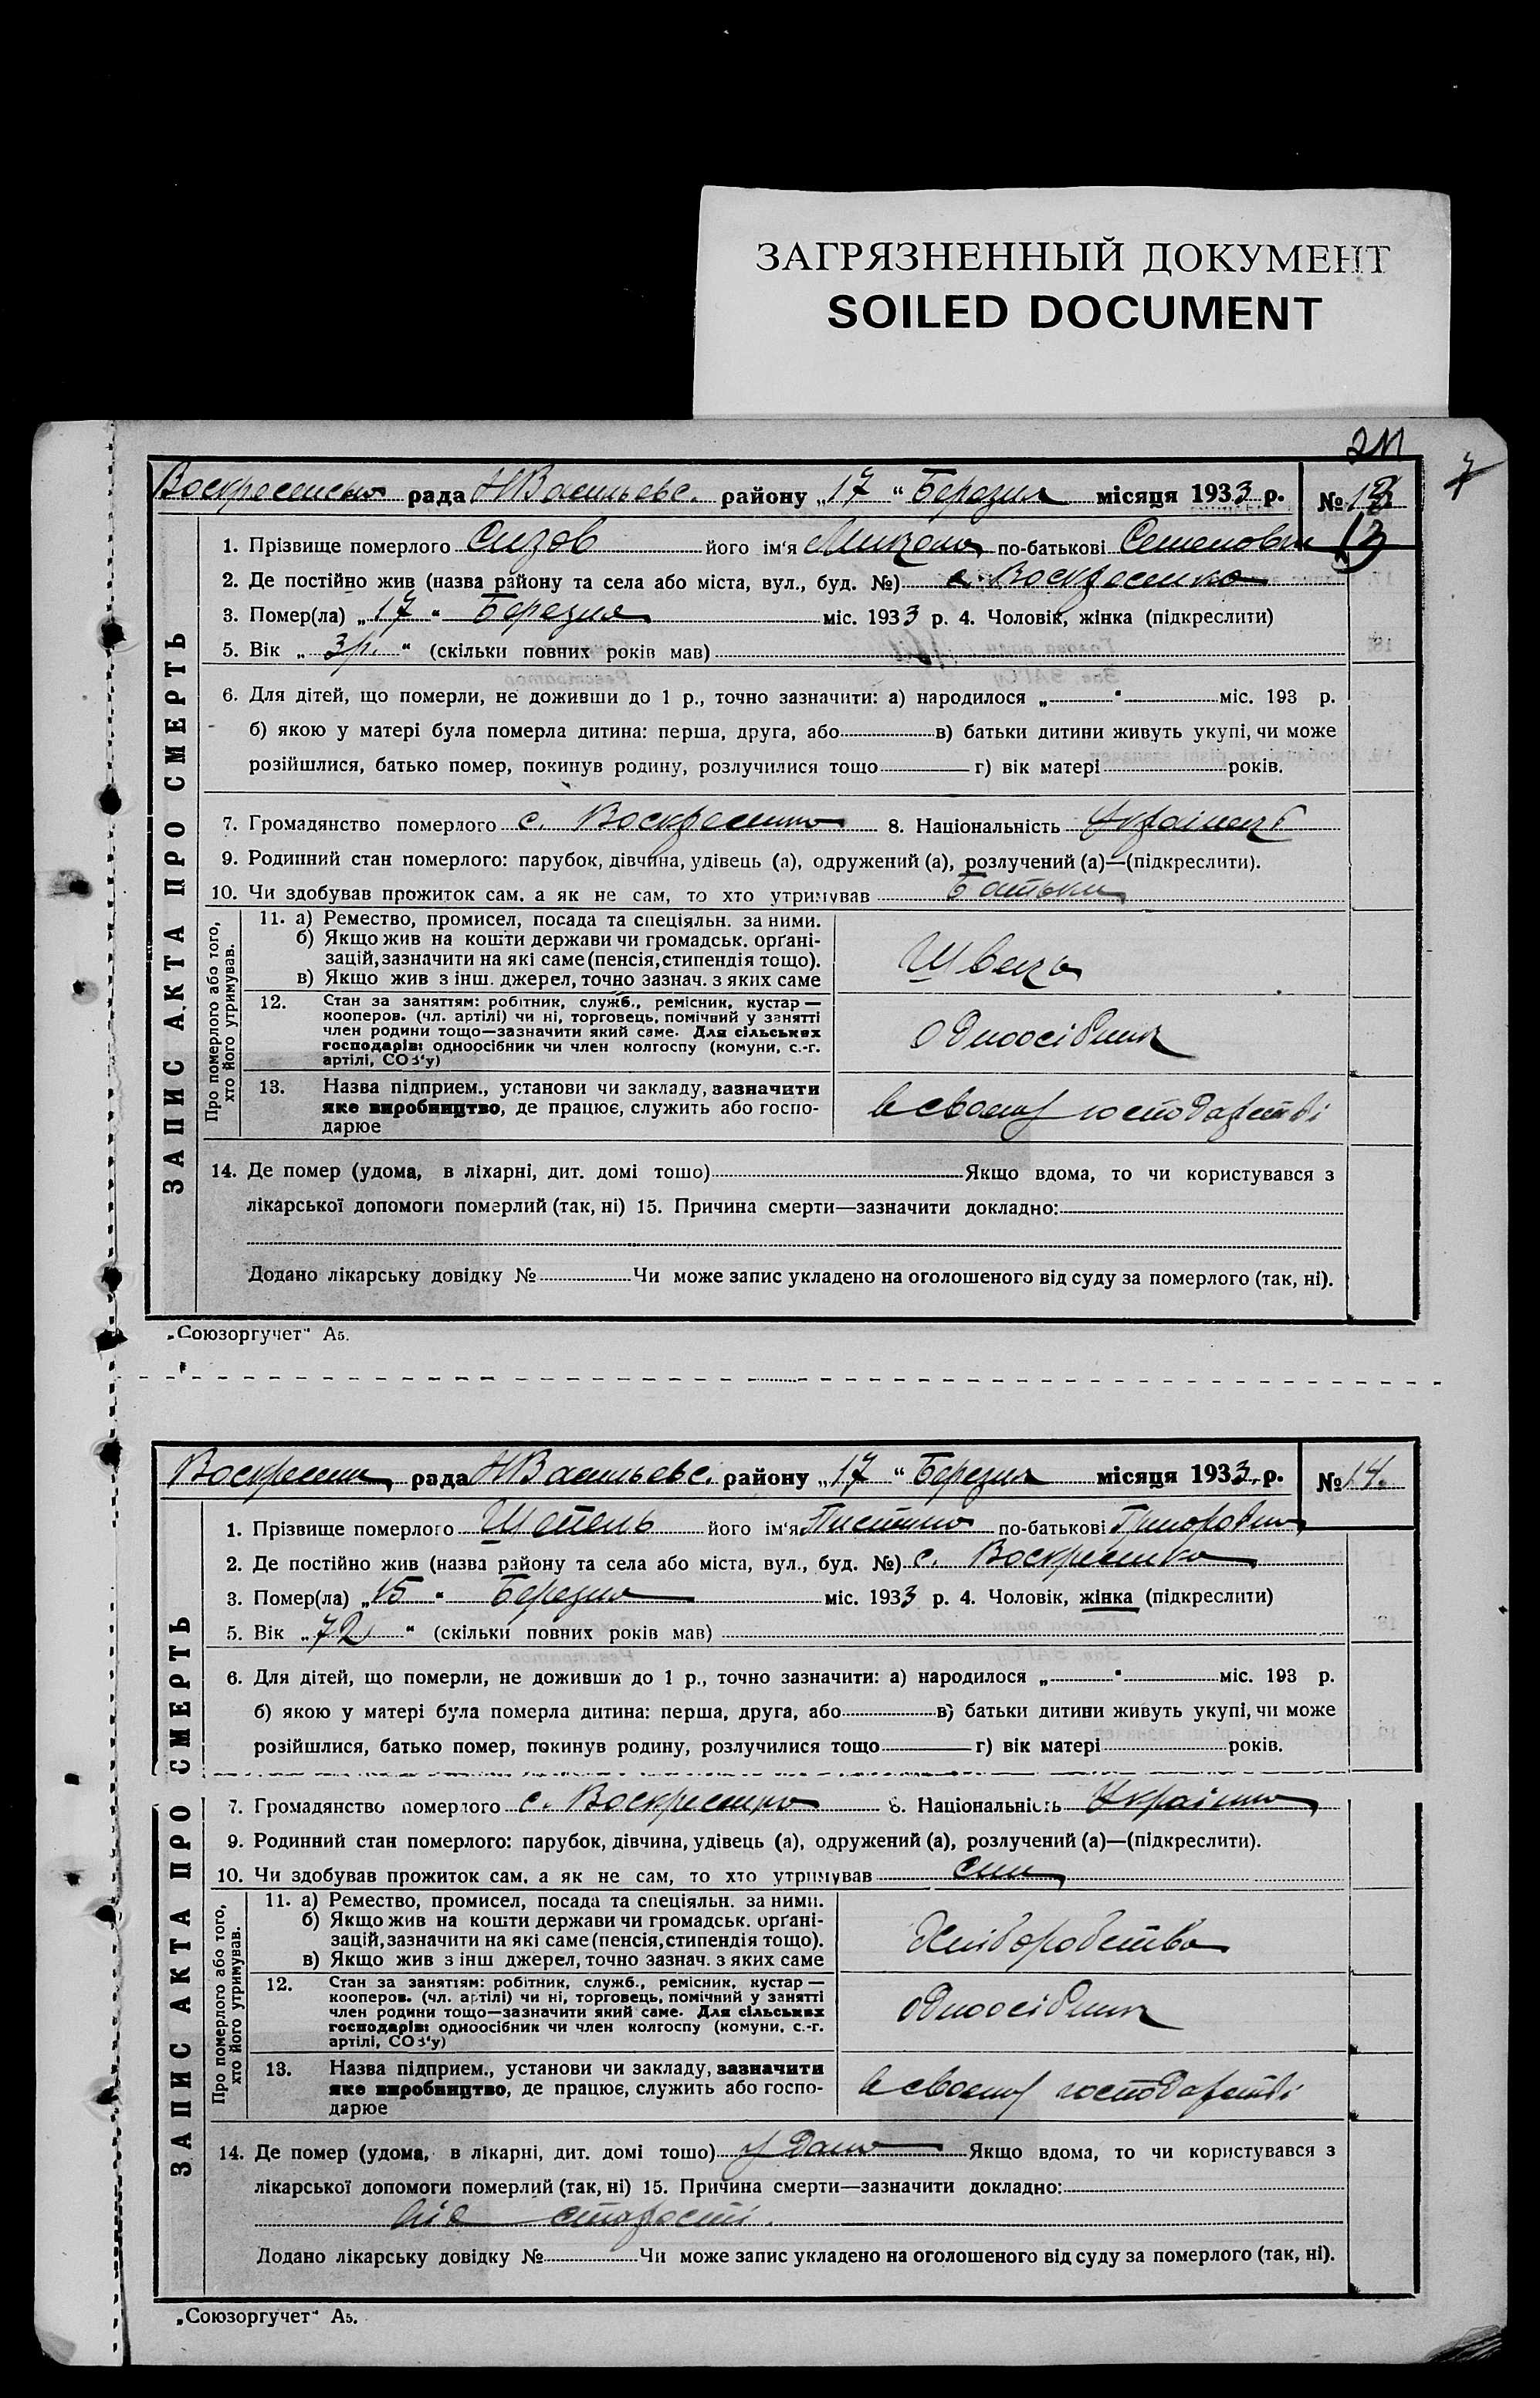 ЗАГРЯЗНЕННЫЙ ДОКУМЕНТ
SOILED DOCUMENT
7
рада НВасильевс. району „17“ Березня місяця 1933 р. № 13
13
1. Прізвище померлого Сизов його ім‘я Микола по-батькові Семенович
2. Де постійно жив (назва району та села або міста, вул., буд. №) с. Воскресенка
3. Помер(ла) „17“ Березня міс. 1933 р. 4. Чоловік, жінка (підкреслити)
5. Вік „3р.“ (скільки повних років мав)
6. Для дітей, що померли, не доживши до 1 р., точно зазначити: а) народилося „ “ міс. 193 р.
б) якою у матері була померла дитина: перша, друга, або в) батьки дитини живуть укупі, чи може
розійшлися, батько помер, покинув родину, розлучилися тощо г) вік матері років.
7. Громадянство померлого с. Воскресенка 8. Національність Українець
9. Родинний стан померлого: парубок, дівчина, удівець (а), одружений (а), розлучений (а)—(підкреслити).
10. Чи здобував прожиток сам, а як не сам, то хто утримував Батьки
ЗАПИС АКТА ПРО СМЕРТЬ
Про померлого або того, хто його утримував.
11. а) Ремество, промисел, посада та спеціяльн. за ними.
б) Якщо жив на кошти держави чи громадськ. орґані-
зацій, зазначити на які саме (пенсія, стипендія тощо).
в) Якщо жив з інш. джерел, точно зазнач. з яких саме
Швець
12. Стан за заняттям: робітник, служб., ремісник, кустар —
кооперов. (чл. артілі) чи ні, торговець, помічний у занятті
член родини тощо—зазначити який саме. Для сільських
господарів: одноосібник чи член колгоспу (комуни, с.-г.
артілі, СОЗ‘у)
Одноосібник
13. Назва підприєм., установи чи закладу, зазначити
яке виробництво, де працює, служить або госпо-
дарює
в своему господарстві
14. Де помер (удома, в лікарні, дит. домі тощо) Якщо вдома, то чи користувався з
лікарської допомоги померлий (так, ні) 15. Причина смерти—зазначити докладно:
Додано лікарську довідку № Чи може запис укладено на оголошеного від суду за померлого (так, ні).
„Союзоргучет“ А5.
рада НВасильевс. району „17“ Березня місяця 1933 р. № 14.
1. Прізвище померлого його ім‘я по-батькові
2. Де постійно жив (назва району та села або міста, вул., буд. №) с. Воскресенка
3. Помер(ла) „15“ Березня міс. 1933 р. 4. Чоловік, жінка (підкреслити)
5. Вік „72“ (скільки повних років мав)
6. Для дітей, що померли, не доживши до 1 р., точно зазначити: а) народилося „ “ міс. 193 р.
б) якою у матері була померла дитина: перша, друга, або в) батьки дитини живуть укупі, чи може
розійшлися, батько помер, покинув родину, розлучилися тощо г) вік матері років.
7. Громадянство померлого с. Воскресенка 8. Національність Українка
9. Родинний стан померлого: парубок, дівчина, удівець (а), одружений (а), розлучений (а)—(підкреслити).
10. Чи здобував прожиток сам, а як не сам, то хто утримував син
ЗАПИС АКТА ПРО СМЕРТЬ
Про померлого або того, хто його утримував.
11. а) Ремество, промисел, посада та спеціяльн. за ними.
б) Якщо жив на кошти держави чи громадськ. орґані-
зацій, зазначити на які саме (пенсія, стипендія тощо).
в) Якщо жив з інш джерел, точно зазнач. з яких саме
Хліборобство
12. Стан за заняттям: робітник, служб., ремісник, кустар —
кооперов. (чл. артілі) чи ні, торговець, помічний у занятті
член родини тощо—зазначити який саме. Для сільських
господарів: одноосібник чи член колгоспу (комуни, с.-г.
артілі, СОЗ‘у)
одноосібник
13. Назва підприєм., установи чи закладу, зазначити
яке виробництво, де працює, служить або госпо-
дарює
в своему господарстві
14. Де помер (удома, в лікарні, дит. домі тощо) у Дома Якщо вдома, то чи користувався з
лікарської допомоги померлий (так, ні) 15. Причина смерти—зазначити докладно:
від старості.
Додано лікарську довідку № Чи може запис укладено на оголошеного від суду за померлого (так, ні).
„Союзоргучет“ А5.